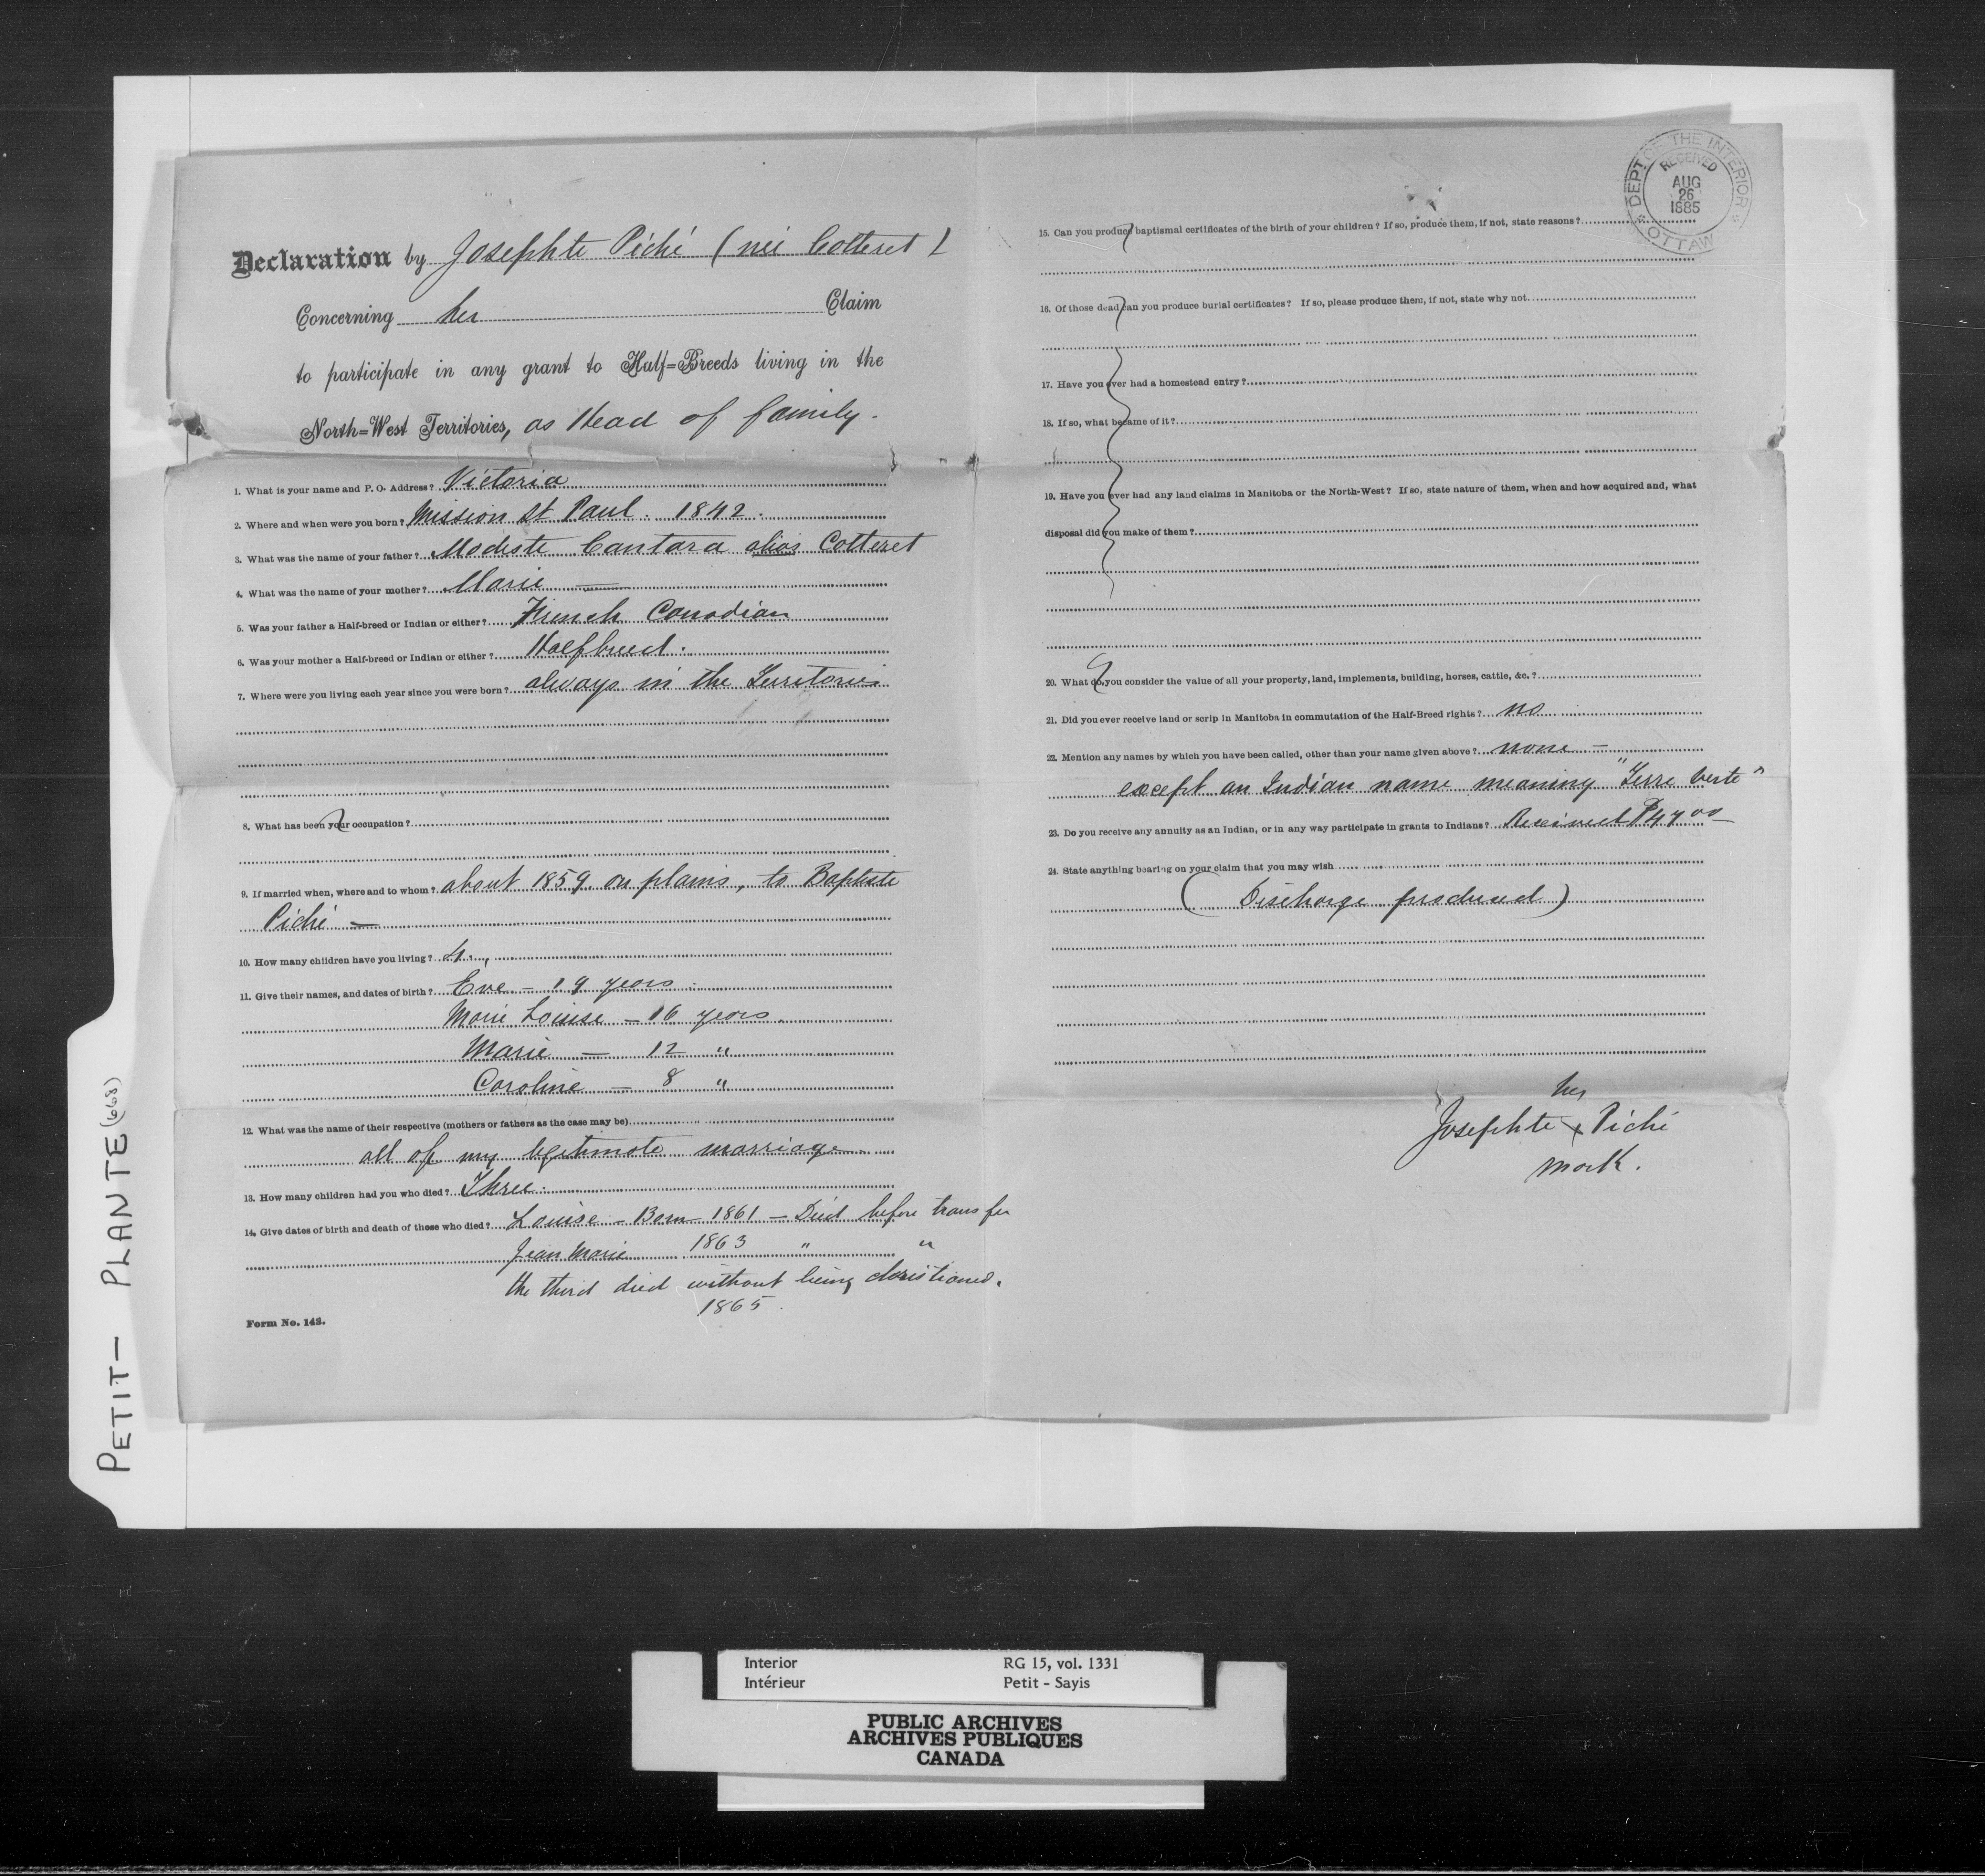 DEPT OF THE INTERIOR
RECEIVED
AUG
26
1885
OTTAWA
Declaration by Josephte Piché (née Cotteret)
Concerning her Claim
to participate in any grant to Half=Breeds living in the
North=West Territories, as Head of family.
1. What is your name and P. O. Address? Victoria
2. Where and when were you born? Mission St Paul. 1842.
3. What was the name of your father? Modeste Cantara alias Cotteret
4. What was the name of your mother? Marie —
5. Was your father a Half-breed or Indian or either? French Canadian
6. Was your mother a Half-breed or Indian or either? Halfbreed.
7. Where were you living each year since you were born? always in the Territories
8. What has been your occupation?
9. If married when, where and to whom? about 1859 on plains, to Baptiste
Piché —
10. How many children have you living? 4.
11. Give their names, and dates of birth? Eve — 19 years.
Marie Louise — 16 years.
Marie — 12 "
Caroline — 8 "
12. What was the name of their respective (mothers or fathers as the case may be)
all of my legitimate marriage
13. How many children had you who died? Three.
14. Give dates of birth and death of those who died? Louise — Born 1861 — Died before transfer
Jean Marie 1863 " "
the third died without being christioned.
1865.
Form No. 143.
15. Can you produce baptismal certificates of the birth of your children? If so, produce them, if not, state reasons?
16. Of those dead can you produce burial certificates? If so, please produce them, if not, state why not
17. Have you ever had a homestead entry?
18. If so, what became of it?
19. Have you ever had any land claims in Manitoba or the North-West? If so, state nature of them, when and how acquired and, what
disposal did you make of them?
20. What do you consider the value of all your property, land, implements, building, horses, cattle, &c.?
21. Did you ever receive land or scrip in Manitoba in commutation of the Half-Breed rights? no
22. Mention any names by which you have been called, other than your name given above? none —
except an Indian name meaning "Terre verte"
23. Do you receive any annuity as an Indian, or in any way participate in grants to Indians? Received $47 00
24. State anything bearing on your claim that you may wish
(Discharge produced)
her
Josephte x Piché
mark.
PETIT — PLANTE (668)
Interior RG 15, vol. 1331
Intérieur Petit - Sayis
PUBLIC ARCHIVES
ARCHIVES PUBLIQUES
CANADA